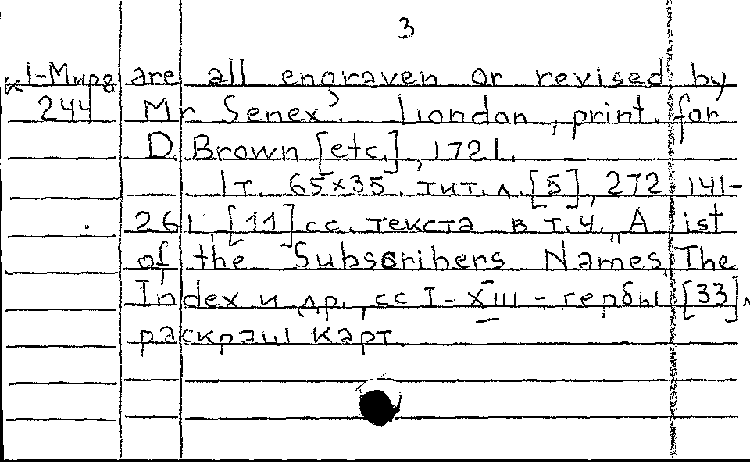 3
к I-Мира are all engraven or revised by
244 Mr Senex". London, print. for
D. Brown [etc.], 1721.
1т. 65x35. тит.л. [5], 272 141-
261 [11] сс. текста в т.ч. "A ist
of the Subscribers Names, The
Index и др., сс I-XIII - гербы [33] л.
раскраш карт.